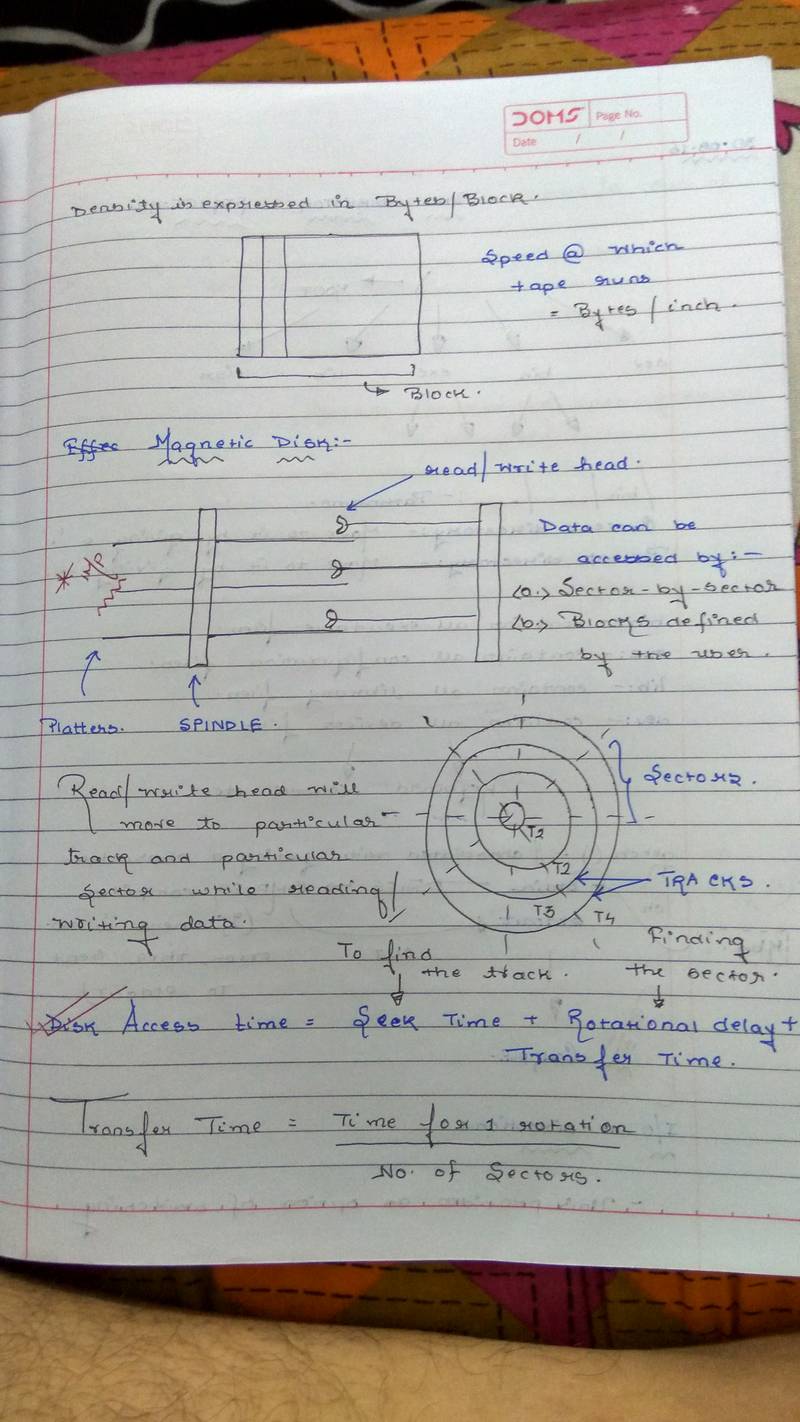 DOMS
Page No.
Date / /
Density is expressed in Bytes/Block.
Speed @ which
tape runs
= Bytes/inch.
Block.
Effec Magnetic Disk:-
read/write head.
Data can be
accessed by:-
(a.) Sector-by-sector
(b.) Blocks defined
by the user.
Platters.
SPINDLE.
Read/write head will
more to particular
track and particular
sector while reading/
writing data.
Sectors.
T2
T2
TRACKS.
T3
T4
To find
the track.
Finding
the sector.
Disk Access time = Seek Time + Rotational delay +
Transfer Time.
Transfer Time = Time for 1 rotation
No. of Sectors.